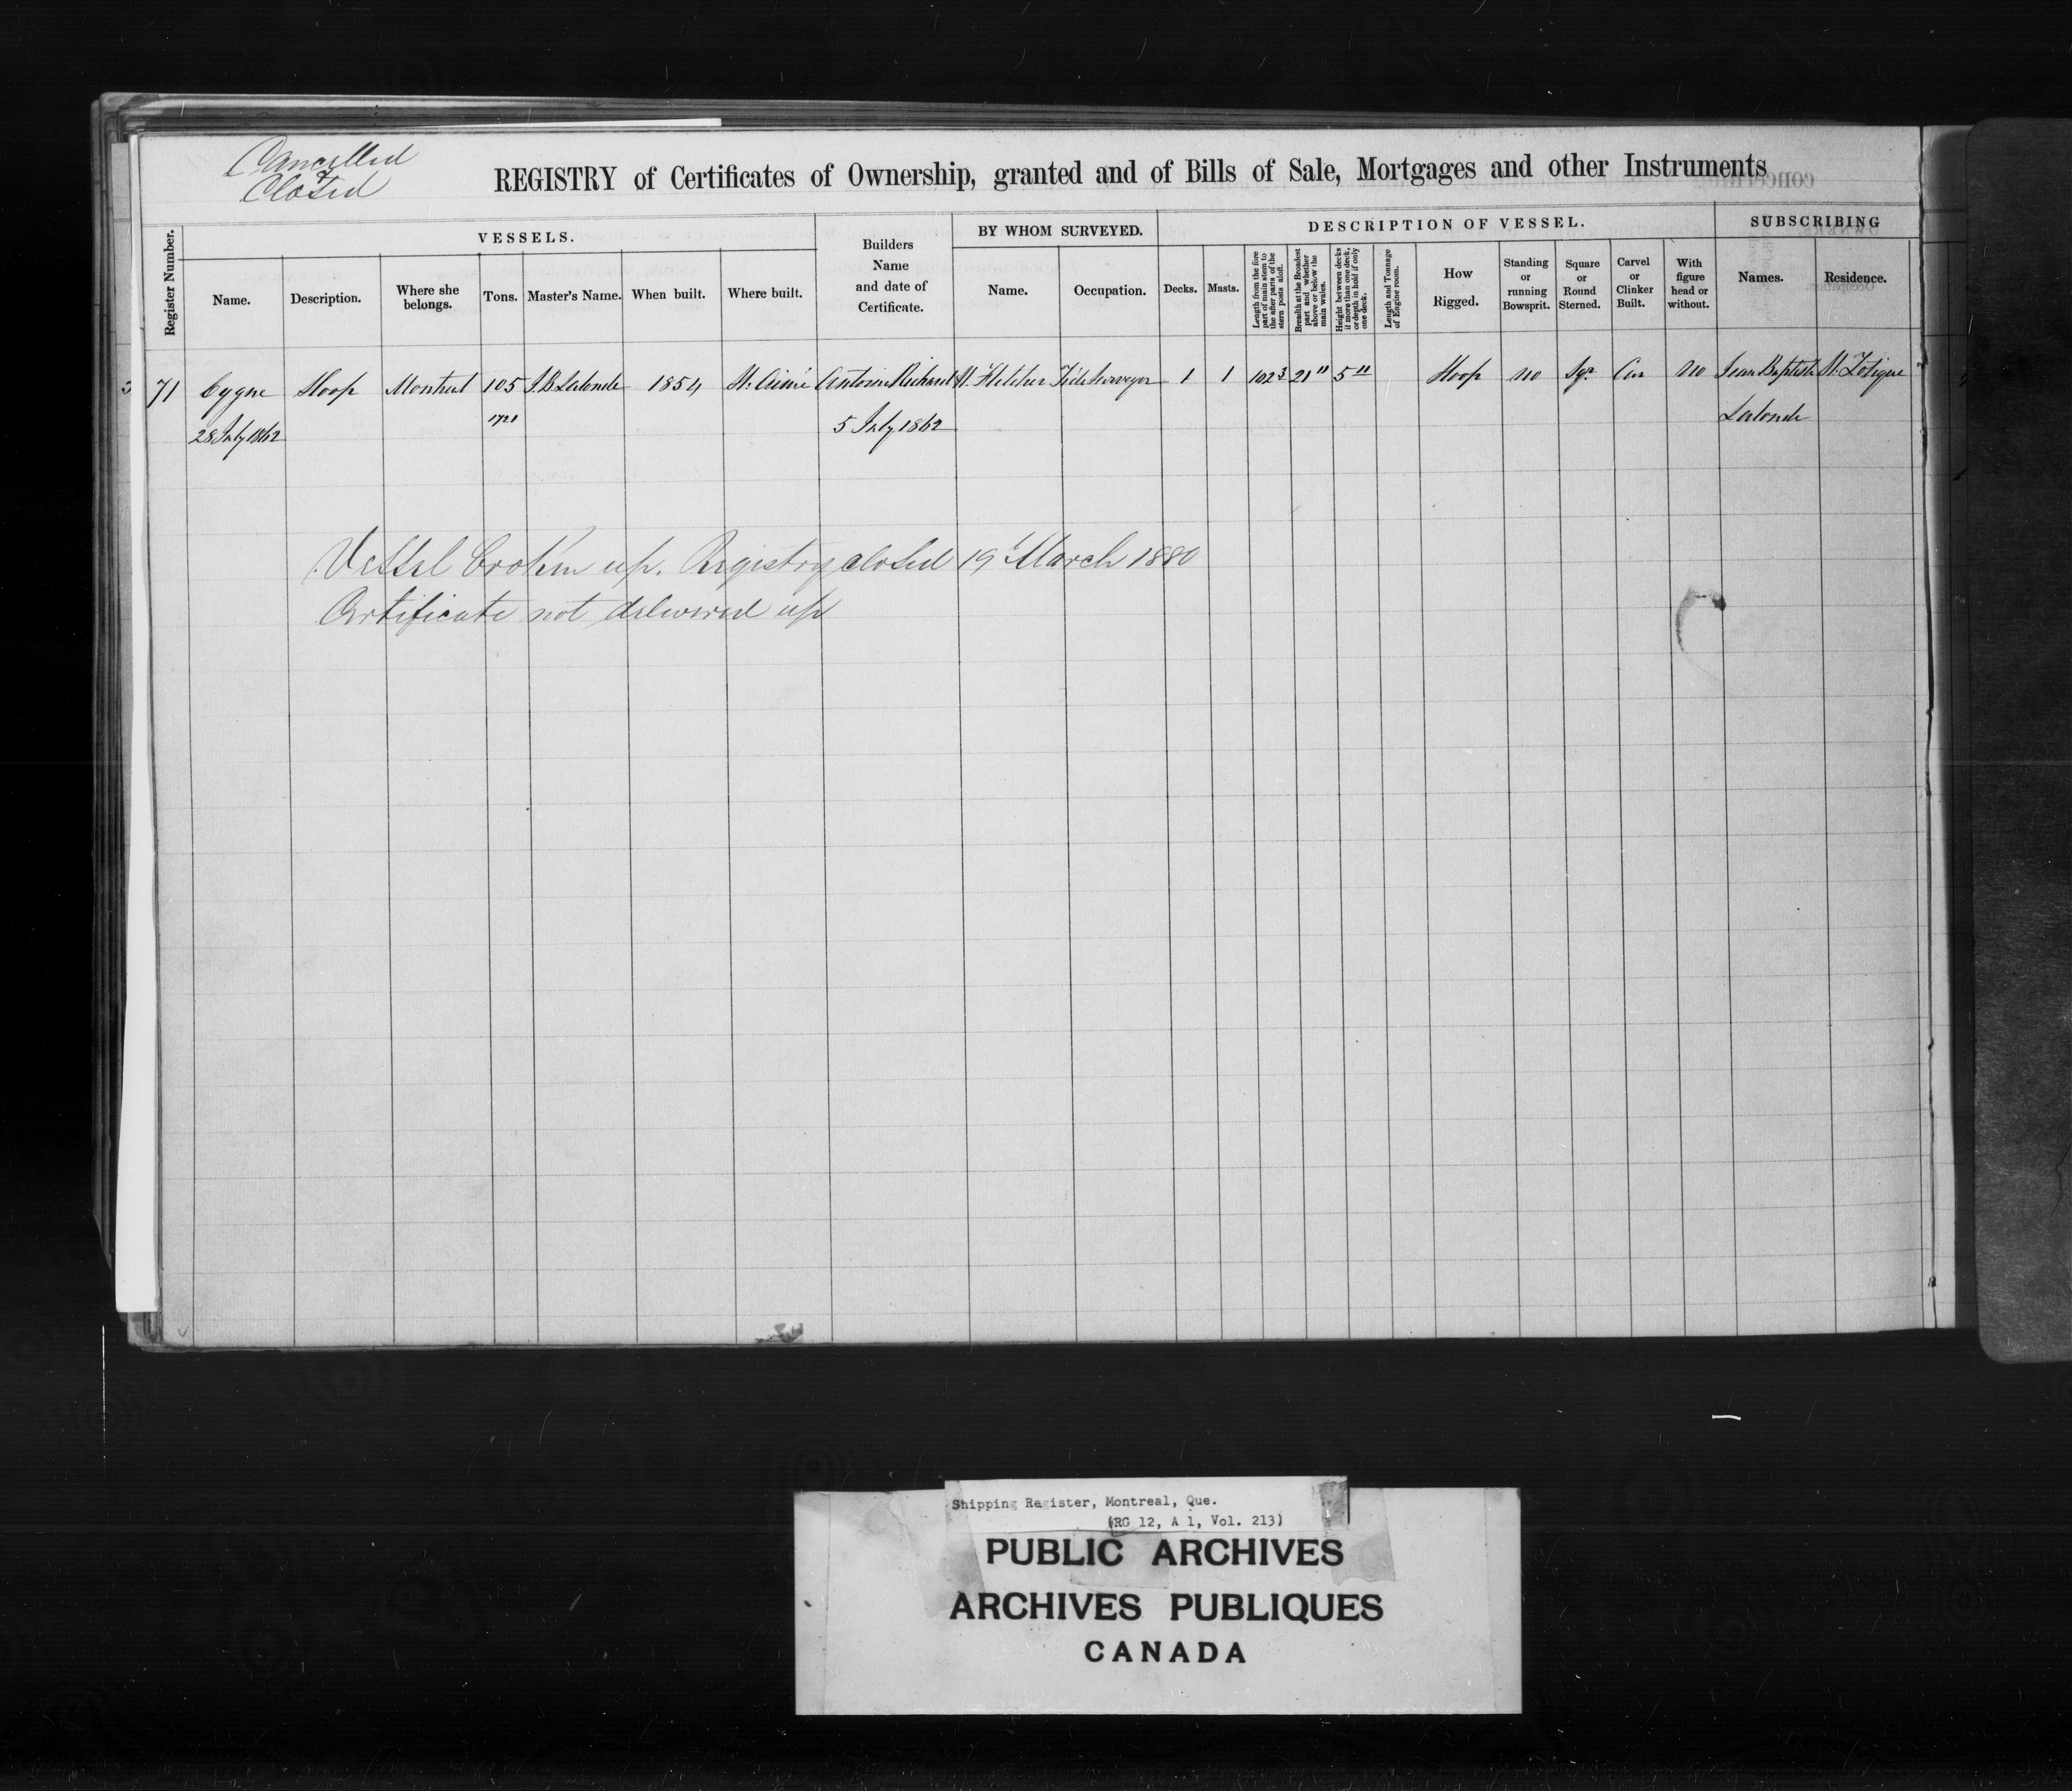 Cancelled
&
Closed
REGISTRY of Certificates of Ownership, granted and of Bills of Sale, Mortgages and other Instruments
Register Number.
VESSELS.
Name.
Description.
Where she belongs.
Tons.
Master's Name.
When built.
Where built.
Builders Name and date of Certificate.
BY WHOM SURVEYED.
Name.
Occupation.
DESCRIPTION OF VESSEL.
Decks.
Masts.
Length from the fore part of main stem to the after parts of the stern posts aloft.
Breadth at the Broadest part and whether above or below the main wales.
Height between decks if more than one deck, or depth in hold if only one deck.
Length and Tonnage of Engine room.
How Rigged.
Standing or running Bowsprit.
Square or Round Sterned.
Carvel or Clinker Built.
With figure head or without.
SUBSCRIBING
Names.
Residence.
71 Cygne Sloop Montreal 105 J.B. Lalonde 1854 St. Aimé Antoine Richard Fletcher Tide Surveyor 1 1 102 3 21 11 5 11 Sloop no Sqr Car no Jean Baptiste St. Zotique
28 July 1862 1721 5 July 1862 Lalonde
Vessel broken up. Registry closed 19 March 1880
Certificate not delivered up
Shipping Register, Montreal, Que.
(RG 12, A 1, Vol. 213)
PUBLIC ARCHIVES
ARCHIVES PUBLIQUES
CANADA